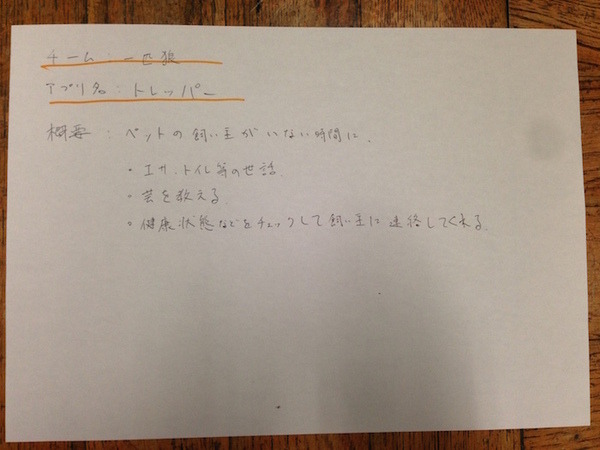 チーム：一匹狼
アプリ名：トレッパー
概要：ペットの飼い主がいない時間に、
・エサ、トイレ等の世話
・芸を教える
・健康状態などをチェックして飼い主に連絡してくれる。